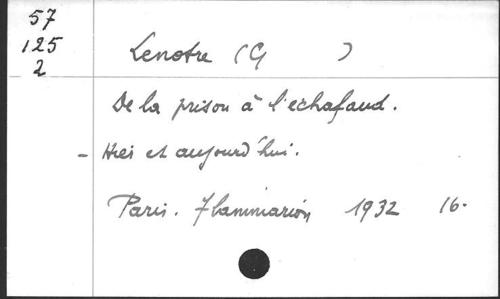 57
125
2
Lenotre (G )
De la prison à l'echafaud.
- Hier et aujourd'hui.
Paris. Flammarion 1932 16.